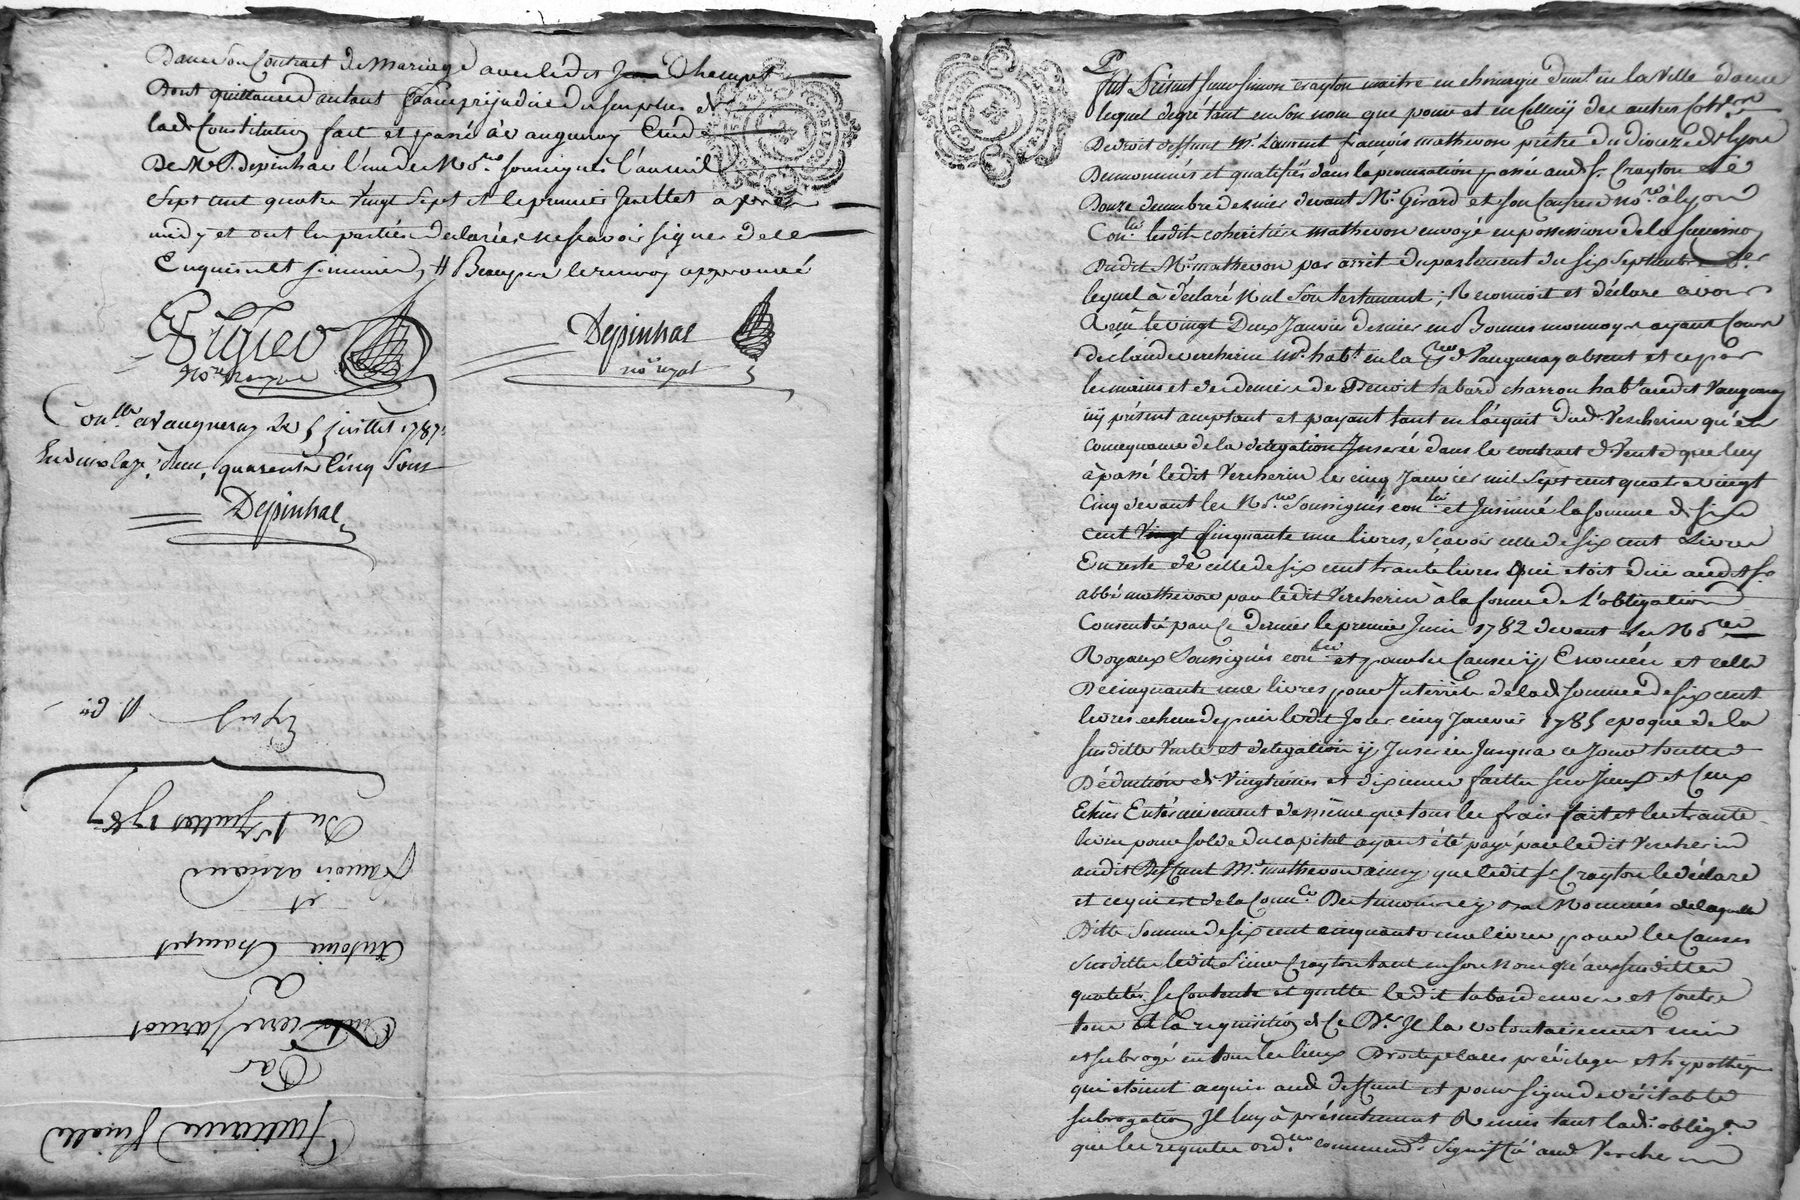 Dans son Contract de Mariage avec ledit Champet
Dont quittance d'autant sans prejudice du surplus de
lad. Constitution fait et passé à vaugneray Etude
De Me. Depinhac l'un des No.res soussignés l'an mil
sept cent quatre vingt sept et le premier Juillet après
midy et ont les parties declarées ne scavoir signer de ce
Enquises et sommées, # le renvoy approuvé
Depinhac
no.re royal
no.re royal
Con.llé à Vaugneray le 5 juillet 1787.
quarente Cinq Sous
Depinhac
Quittance finalle
Par
Pierre
à
Antoine Champet
et
françois
Du 1er Juillet 1787
Exped.
Fut Présent sieur simon crayton maitre en chirurgie dem.t en la Ville de
lequel degré tant en son nom que pour et en celluy des autres Coh.ers
De droit deffunt Mr. Laurent françois mathevon prêtre du diocèze de lyon
Dénommés et qualifiés dans la procuration passée aud. Sr. Crayton le
Douze decembre dernier devant Me. Girard et son Confrere no.re à lyon
Con.lé lesdits cohéritiers mathevon envoyé en possession de la succession
Dudit Mr. mathevon par arrêt du parlement du six septembre d.er
lequel à declaré Nul son testament; Reconnoit et déclare avoir
Reçu le vingt Deux Janvier dernier en Bonnes monnoyes ayant Cours
de claude vercherin hab.t en la p.sse de Vaugneray absent et ce par
les mains et des deniers de Benoit tabard charron hab.t audit Vaugneray
icy présent acceptant et payant tant en l'acquit dud. Vercherin qu'en
consequence de la délégation Inserée dans le contract de Vente que luy
à passé ledit Vercherin le cinq Janvier mil sept cent quatre vingt
Cinq devant les No.res Soussignés con.lé et Insinué la somme de six
cent Vingt Cinquante une livres, Scavoir celle de six cent Livres
En reste de celle de six cent trante livres Qui etoit düe audit Sr.
abbé mathevon par ledit Vercherin à la forme de L'obligation
Consentie par Ce dernier le premier Juin 1782 devant Les No.res
Royaux Soussignés con.lée et pour les Causes y Enoncées et celle
De cinquante une livres pour Interrêts de lad. somme de six cent
livres echeus depuis ledit Jour cinq Janvier 1785 epoque de la
susditte Vente et délégation y Inserée Jusqua ce Jour toutte
Déduction de Vingtièmes et dixieme faitte sur Iceux et Ceux
Echus Entérieurement de même que tous les frais fait et les trante
livres pour solde du capital ayant été payé par ledit Vercherin
audit Deffunt Mr. mathevon ainsy que ledit Sr. Crayton le déclare
et ce qui est de la Conn.ce Des temoins cy bas Nommés de laquelle
Ditte Somme de six cent cinquante une livres pour les Causes
Susdittes ledit Sieur Crayton tant en son nom qu'aux susdittes
qualités se Contente et quitte ledit tabard envers et Contre
tous Et à la requisition de Ce D.er Il la volontairement mis
et subrogé en tous les lieux Droits places privileges et hypotheques
qui etoient acquis aud. deffunt et pour signe de véritable
subrogation Il luy à présentement Remis tant lad. oblig.on
que les requête ord.nce commend.t Signiffié aud. Vercherin